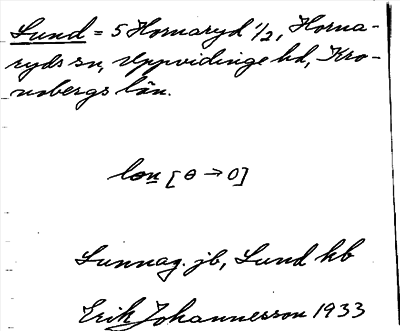 Lund = S Hornaryd 1/2, Horna-
ryds sn, Uppvidinge hd, Kro-
nobergs län.
lon [ɵ → o]
Lunnag. jb, Lund kb
Erik Johannesson 1933